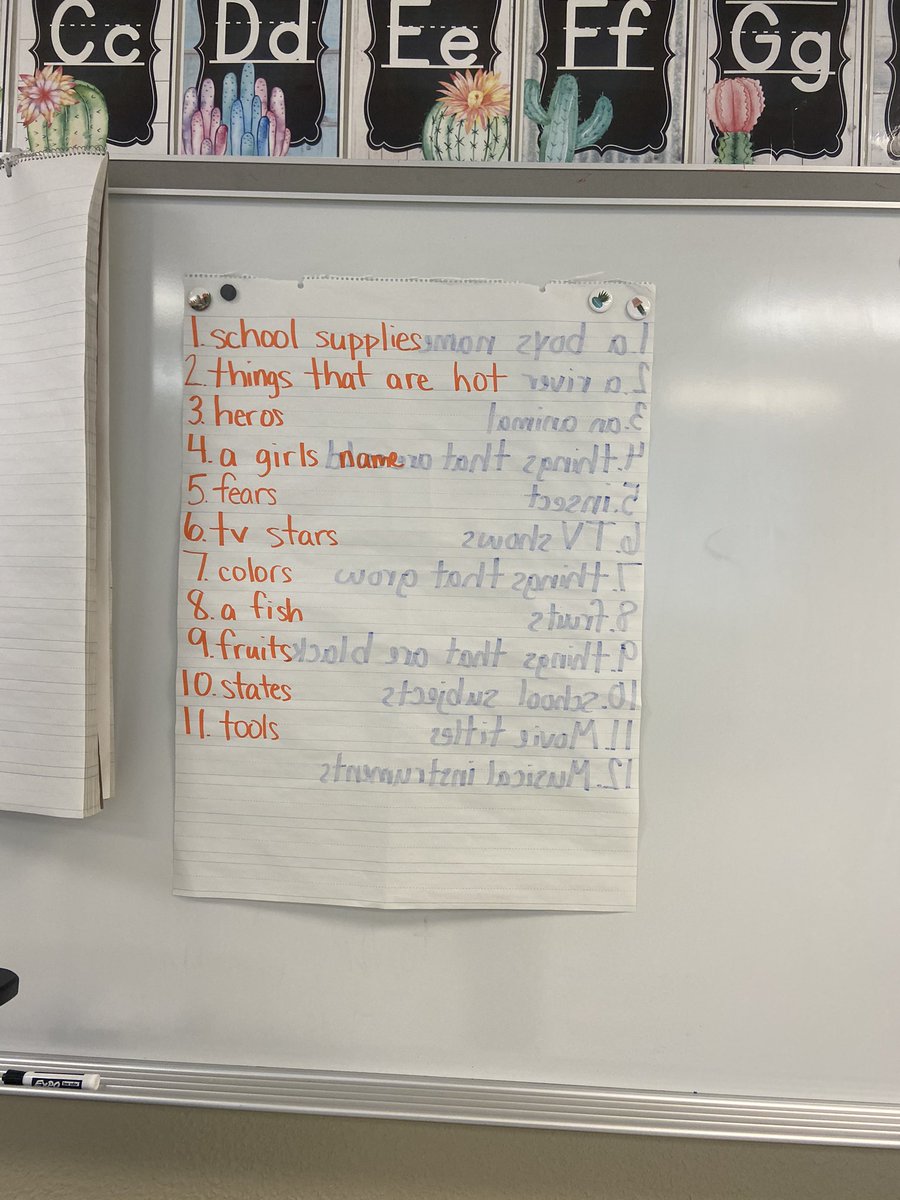 Cc Dd Ee Ff Gg
1. school supplies
2. things that are hot
3. heros
4. a girls name
5. fears
6. tv stars
7. colors
8. a fish
9. fruits
10. states
11. tools
1. a boys name
2. a river
3. an animal
4. things that are
5. insect
6. TV shows
7. things that grow
8. fruits
9. things that are black
10. school subjects
11. Movie titles
12. Musical instruments
EXPO